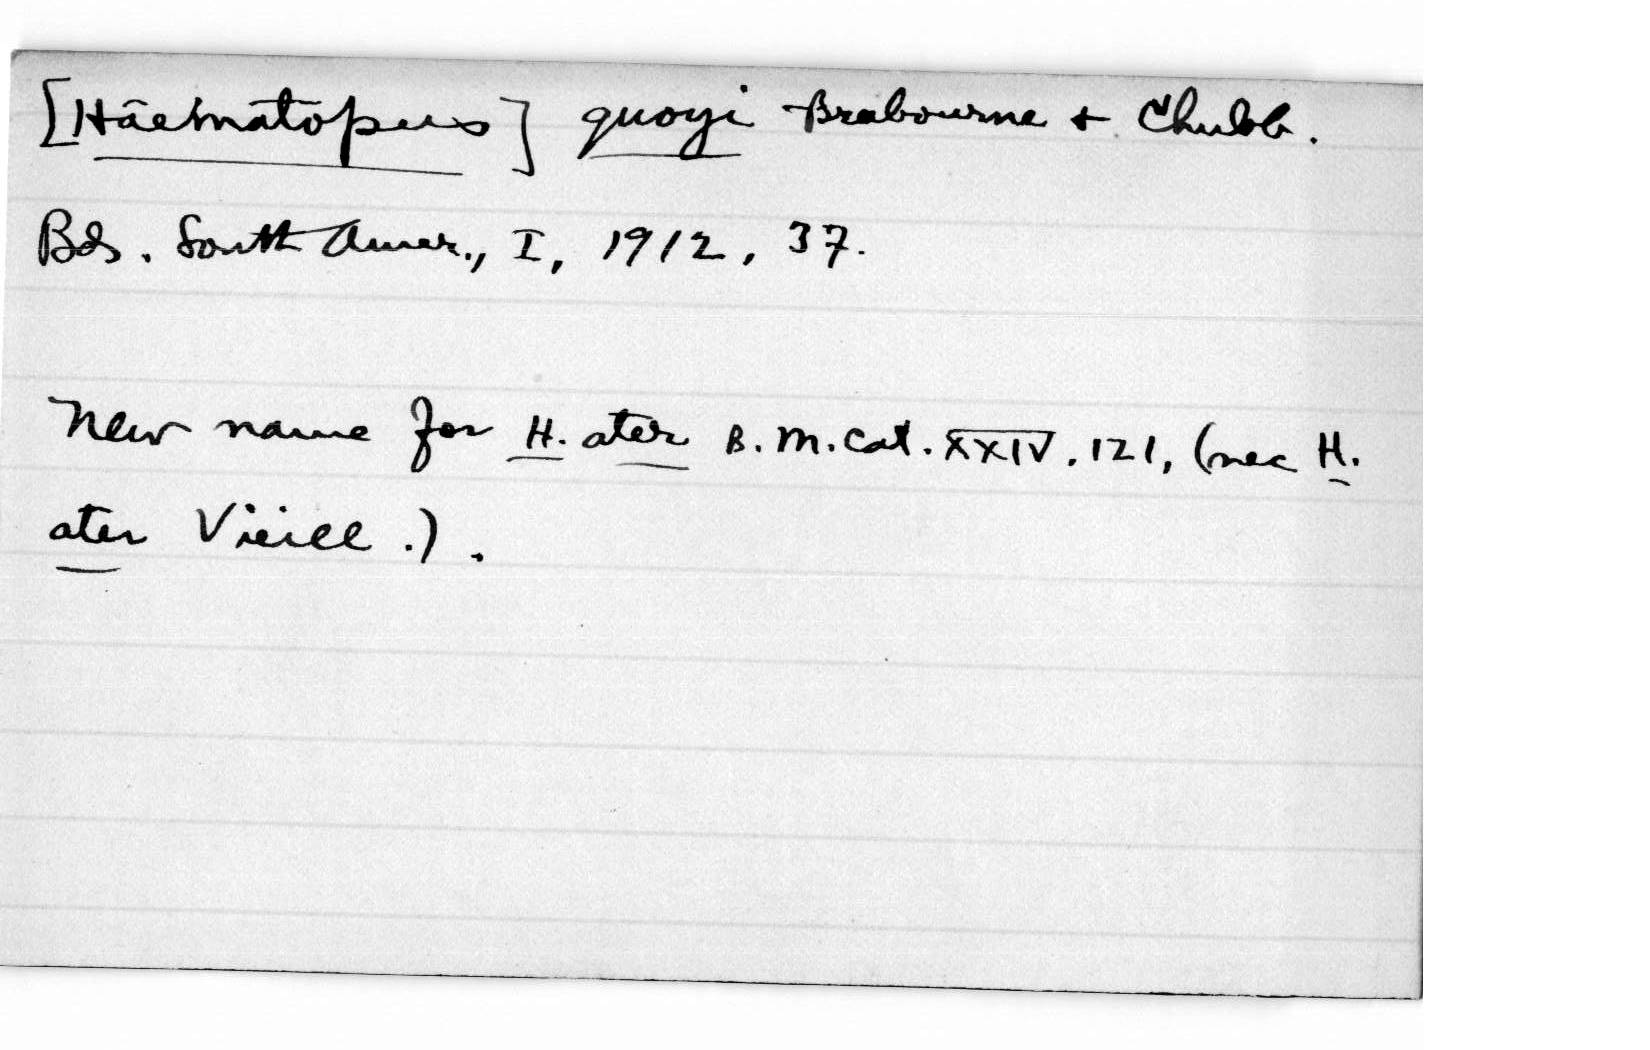 [Haematopus] quoyi Brabourne + Chubb.
Bds. South Amer., I, 1912, 37.
New name for H. ater B.M.Cat. XXIV. 121, (nec H.
ater Vieill.).